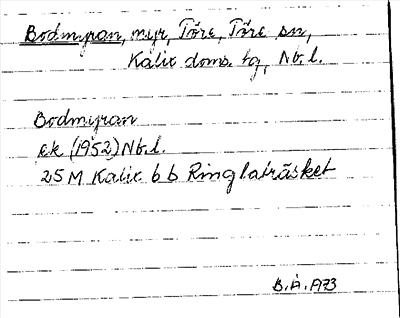 Bodmyran, myr, Töre, Töre sn,
Kalix doms. tg, Nb. l.
Bodmyran
Ek (1952) Nb. l.
25 M Kalix 6 b Ringlaträsket
B. Å. 1973